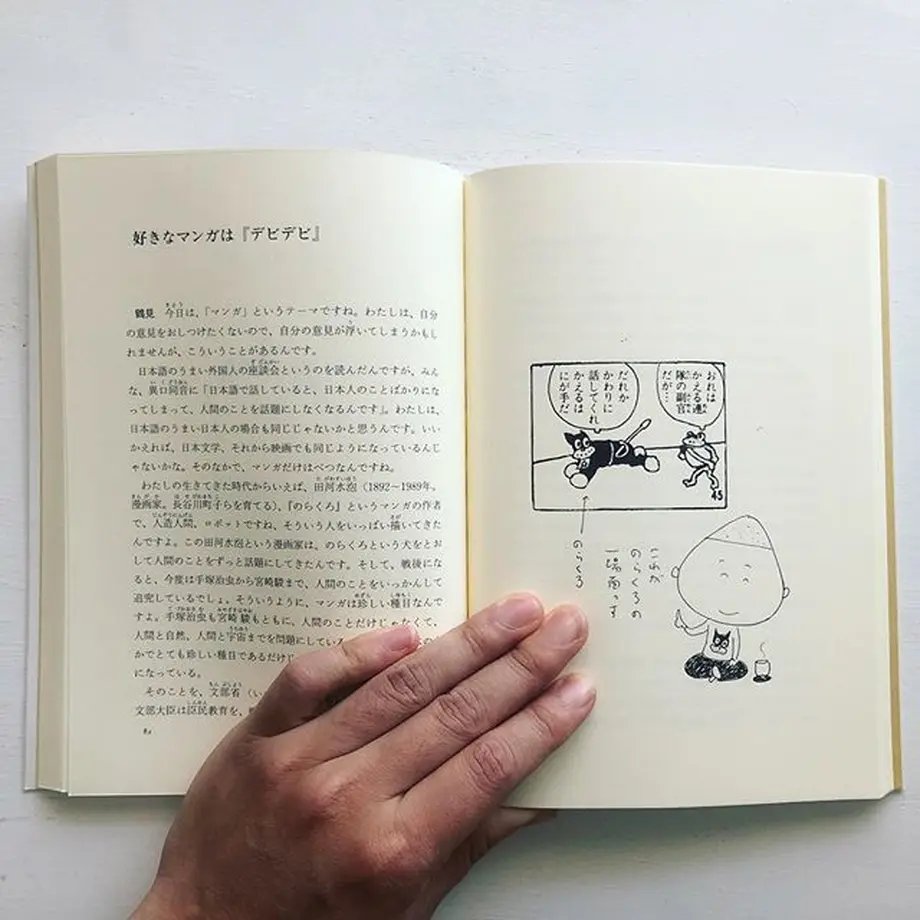 好きなマンガは『デビデビ』
鶴見　今日は、「マンガ」というテーマですね。わたしは、自分
の意見をおしつけたくないので、自分の意見が浮いてしまうかもし
れませんが、こういうことがあるんです。
日本語のうまい外国人の座談会というのを読んだんですが、みん
な、異口同音に「日本語で話していると、日本人のことばかりにな
ってしまって、人間のことを話題にしなくなるんです」。わたしは、
日本語のうまい日本人の場合も同じじゃないかと思うんです。いい
かえれば、日本文学、それから映画でも同じようになっているんじ
ゃないかな。そのなかで、マンガだけはべつなんですね。
わたしの生きてきた時代からいえば、田河水泡（1892〜1989年。
漫画家。長谷川町子らを育てる）、『のらくろ』というマンガの作者
で、人造人間、ロボットですね、そういう人をいっぱい描いてきた
んですよ。この田河水泡という漫画家は、のらくろという犬をとお
して人間のことをずっと話題にしてきたんです。そして、戦後にな
ると、今度は手塚治虫から宮崎駿まで、人間のことをいっかんして
追究しているでしょ。そういうように、マンガは珍しい種目なんで
すよ。手塚治虫も宮崎駿もともに、人間のことだけじゃなくて、
人間と自然、人間と宇宙までを問題にしている
かでとても珍しい種目であるだけ
になっている。
そのことを、文部省（い
文部大臣は臣民教育を、
82
おれは
かえる連
隊の副官
だが…
だれか
かわりに
話してくれ
かえるは
にが手だ
45
のらくろ
これが
のらくろの
一場面っす